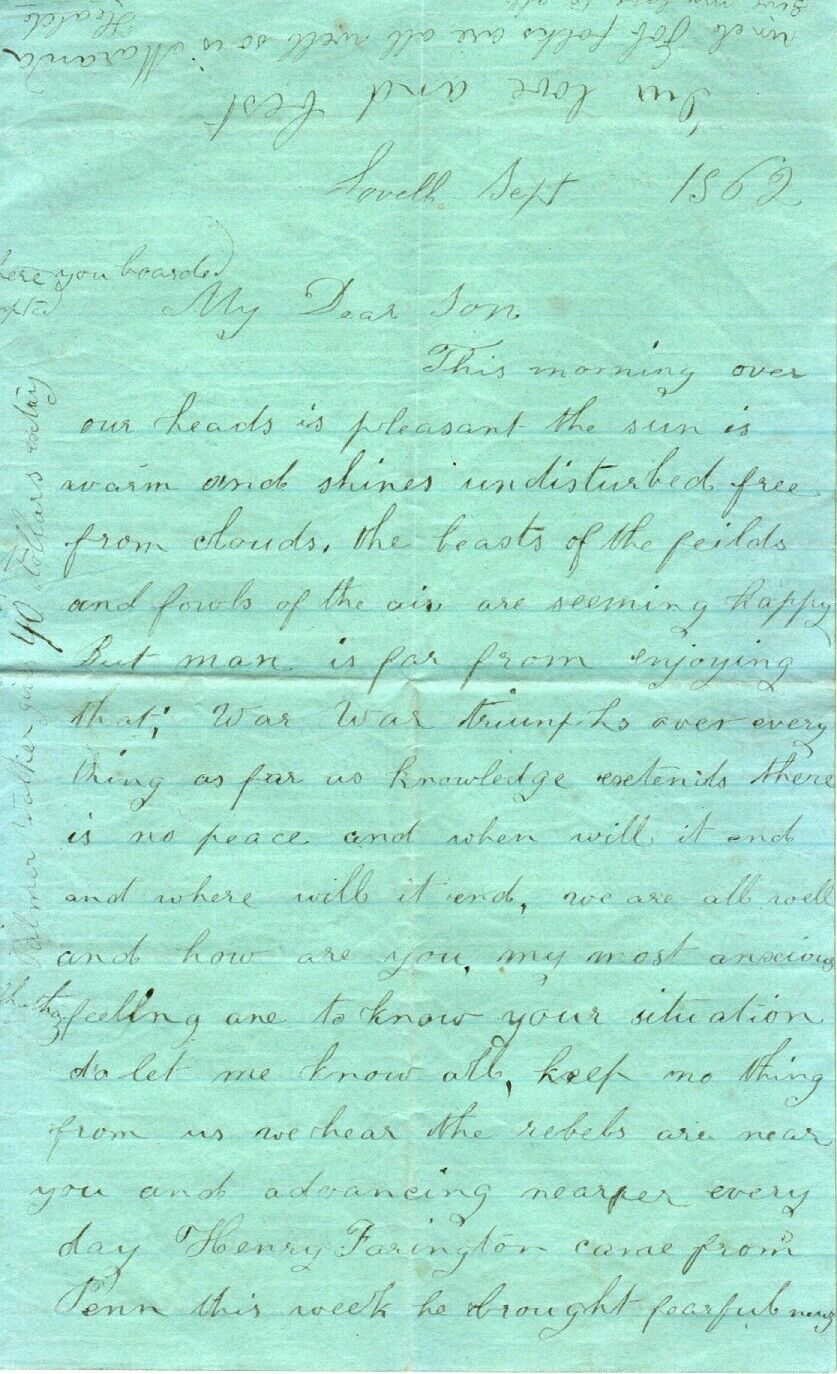 give my love to all
uncle Job folks are all well so is
Heald
In love and best
Lovell Sept 1862
here you boarded
My Dear Son
This morning over
our heads is pleasant the sun is
warm and shines undisturbed free
from clouds, the beasts of the feilds
and fowls of the air are seeming happy
But man is far from enjoying
that; War War triumphs over every
thing as far as knowledge extends there
is no peace and when will it end
and where will it end, we are all well
and how are you, my most anxcious
feelling are to know your situation
do let me know all, keep no thing
from us we hear the rebels are near
you and advancing nearper every
day Henry Farington came from
Penn this week he brought fearful news
Palmer Walker 40 dollars